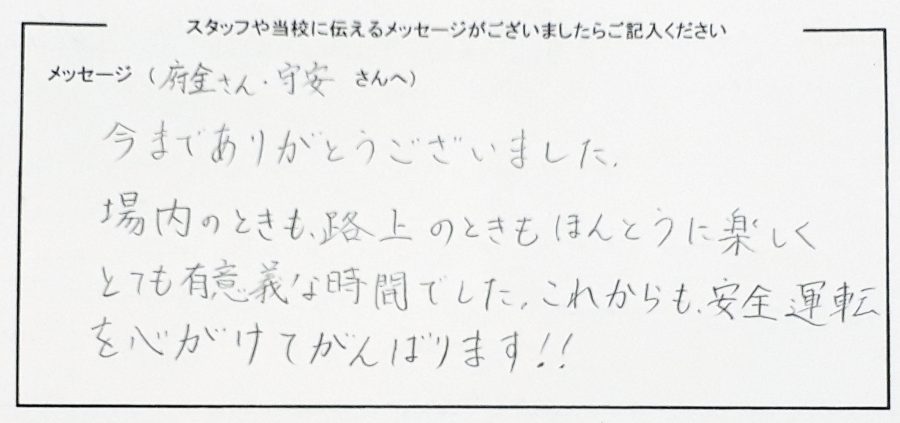 スタッフや当校に伝えるメッセージがございましたらご記入ください
メッセージ（府金さん・守安 さんへ）
今までありがとうございました。
場内のときも、路上のときもほんとうに楽しく
とても有意義な時間でした。これからも、安全運転
を心がけてがんばります!!